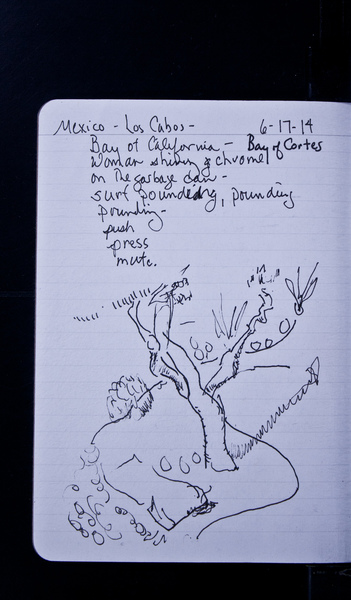 Mexico - Los Cabos - 6-17-14
Bay of California - Bay of Cortes
Woman shining chrome
on the garbage can -
surf pounding, pounding
pounding -
push
press
mute.